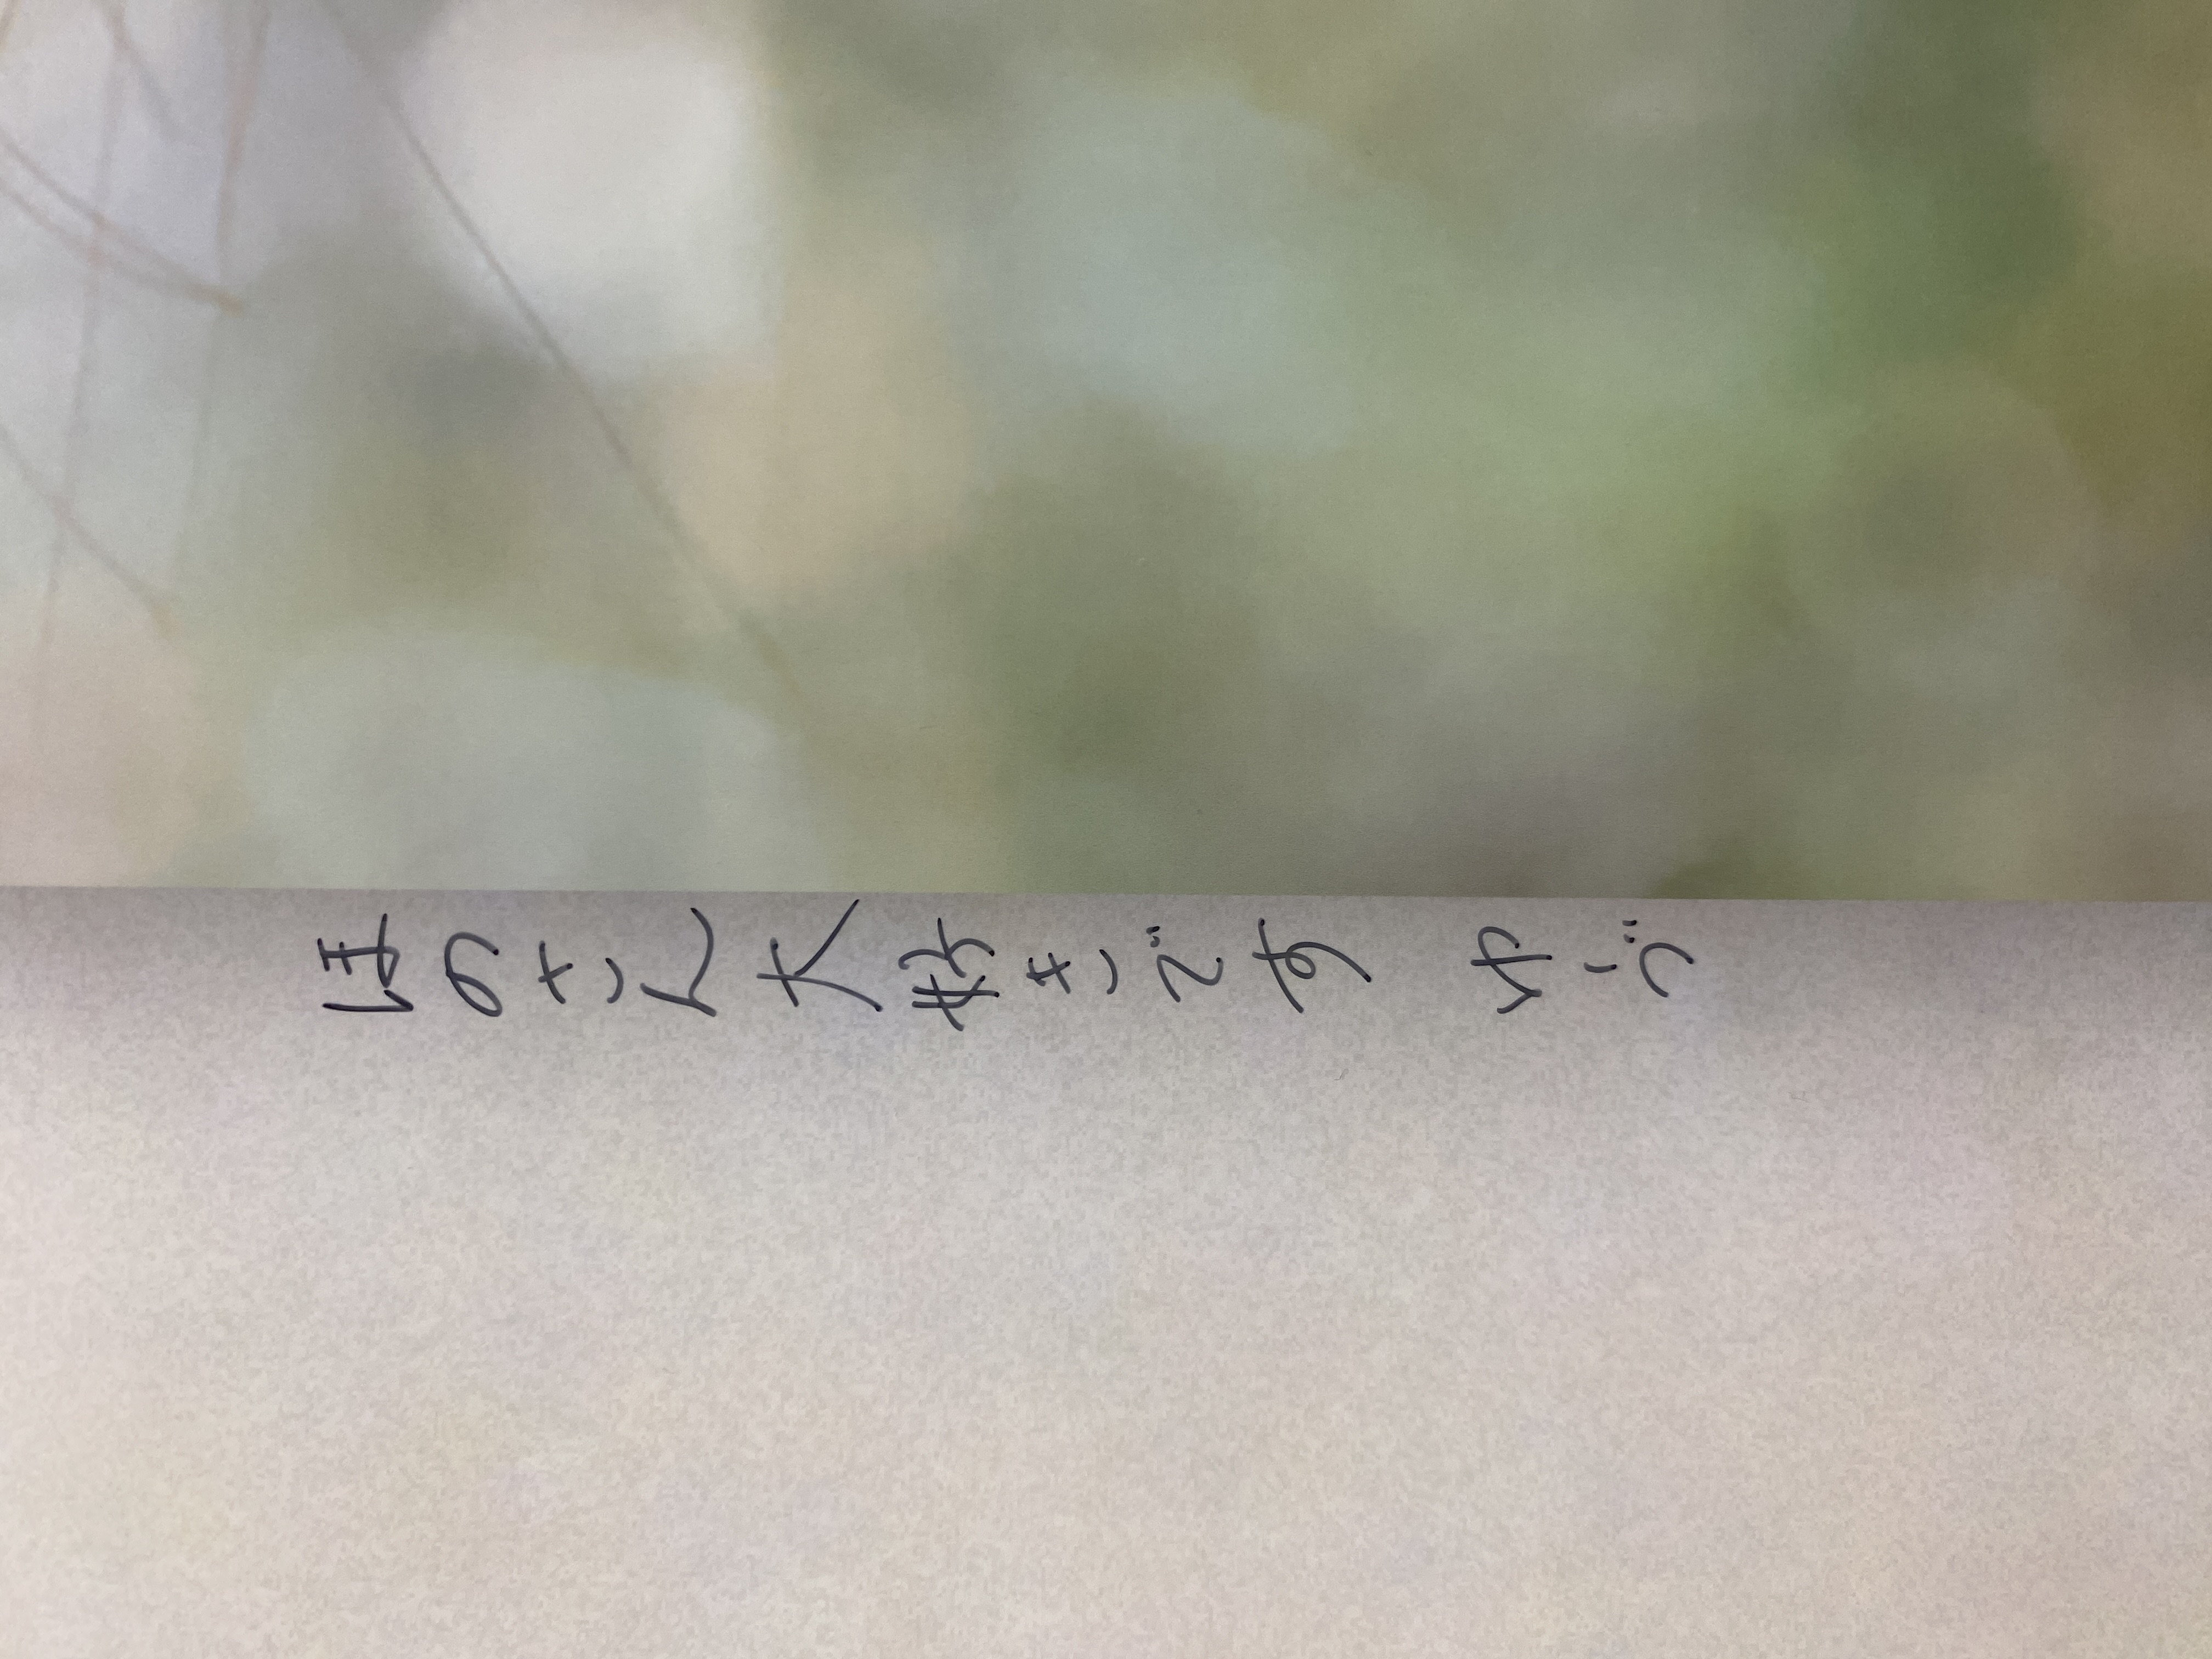 ほのさん大好きです ゆーづ